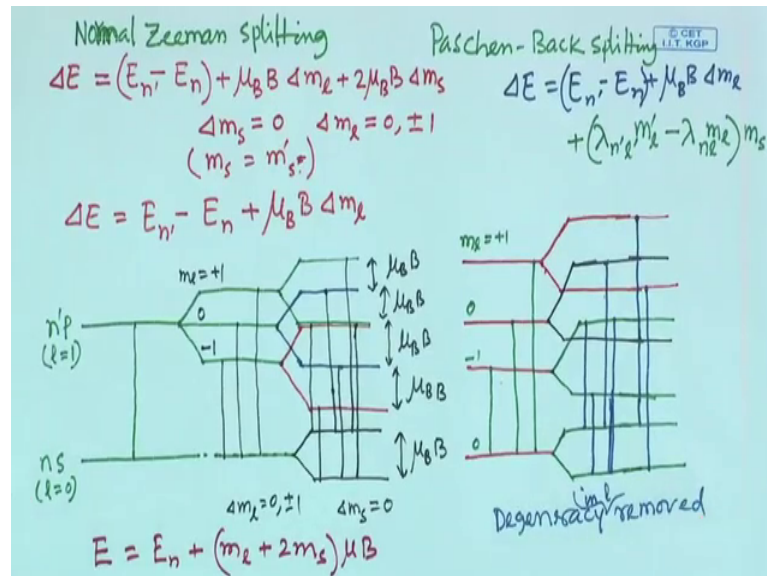 Normal Zeeman splitting
ΔE = (Eₙ' - Eₙ) + μ_B B Δm_ℓ + 2μ_B B Δm_s
Δm_s = 0 Δm_ℓ = 0, ±1
(m_s = m'_s)
ΔE = Eₙ' - Eₙ + μ_B B Δm_ℓ
Paschen-Back splitting
© CET
I.I.T. KGP
ΔE = (Eₙ' - Eₙ) + μ_B B Δm_ℓ
+ (λ_n'ℓ' m'_ℓ - λ_nℓ m_ℓ) m_s
n'p
(ℓ=1)
ns
(ℓ=0)
m_ℓ = +1
0
-1
μ_B B
μ_B B
μ_B B
μ_B B
μ_B B
Δm_ℓ = 0, ±1 Δm_s = 0
E = Eₙ + (m_ℓ + 2m_s) μB
m_ℓ = +1
0
-1
0
(in ℓ)
Degeneracy removed